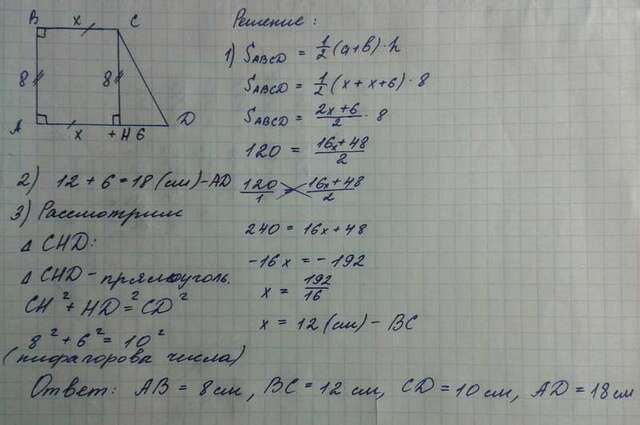 B x C
8 8
A x + H 6 D
Решение:
1) S ABCD = 1/2 (a+b) · h
S ABCD = 1/2 (x + x + 6) · 8
S ABCD = 2x+6/2 · 8
120 = 16x+48/2
120/1 = 16x+48/2
240 = 16x + 48
-16x = -192
x = 192/16
x = 12 (см) - BC
2) 12 + 6 = 18 (см) - AD
3) Рассмотрим
Δ CHD:
Δ CHD - прямоуголь.
CH² + HD² = CD²
8² + 6² = 10²
(пифагорова числа)
Ответ: AB = 8 см, BC = 12 см, CD = 10 см, AD = 18 см